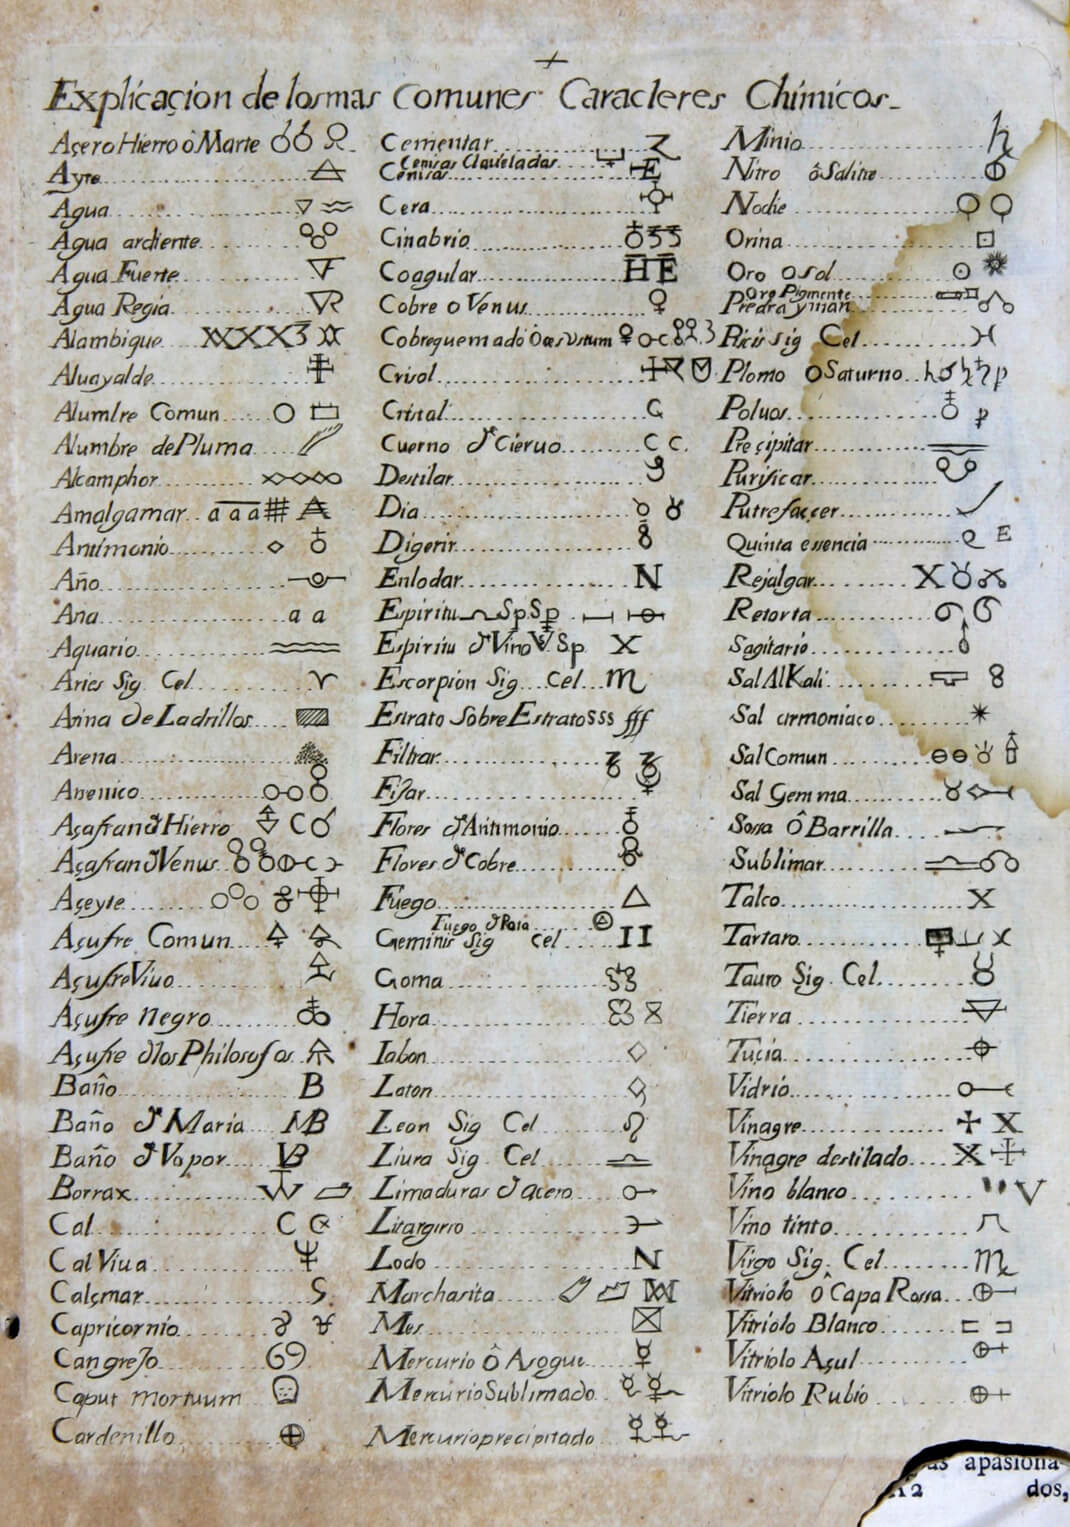 Explicaçion de los mas Comunes Caracteres Chimicos
Açero Hierro ò Marte
Ayre
Agua
Agua ardiente
Agua Fuerte
Agua Regia
Alambique
Aluayalde
Alumbre Comun
Alumbre de Pluma
Alcamphor
Amalgamar a a a
Antimonio
Año
Ana a a
Aquario
Aries Sig Cel
Arina de Ladrillos
Arena
Arsenico
Açafran d Hierro
Açafran d Venus
Açeyte
Açufre Comun
Açufre Viuo
Açufre Negro
Açufre d los Philosofos
Baño B
Baño d Maria MB
Baño d Vapor VB
Borrax
Cal C
Cal Viua
Calçinar
Capricornio
CangreJo 69
Caput mortuum
Cardenillo
Cementar
Cenisas Claueladas
Cenisas E
Cera
Cinabrio
Coagular H E
Cobre o Venus
Cobre quemado O æs Vstum
Crisol
Cristal
Cuerno d Cieruo C C.
Destilar
Dia
Digerir
Enlodar N
Espiritu Sp. Sp
Espiritu d Vino V Sp. X
Escorpion Sig Cel
Estrato Sobre Estrato SSS fff
Filtrar
Fijar
Flores d Antimonio
Flores d Cobre
Fuego
Fuego d Rota
Geminis Sig Cel II
Goma
Hora
Iabon
Laton
Leon Sig Cel
Liura Sig. Cel
Limaduras d acero
Litargirio
Lodo N
Marchasita
Mes
Mercurio ô Asogue
Mercurio Sublimado
Mercurio precipitado
Minio
Nitro ô Salitre
Nodie
Orina
Oro o sol
Oro Pigmente
Piedra yman
Picis sig Cel
Plomo O Saturno
Poluos
Preçipitar
Purificar
Putrefacçer
Quinta essencia E
Rejalgar
Retorta
Sagitario
Sal AlKali
Sal armoniaco
Sal Comun
Sal Gemma
Sossa Ô Barrilla
Sublimar
Talco X
Tartaro
Tauro Sig. Cel.
Tierra
Tucia
Vidrio
Vinagre X
Vinagre destilado X
Vino blanco V
Vino tinto
Virgo Sig. Cel
Vitriolo ô Capa Rossa
Vitriolo Blanco
Vitriolo Açul
Vitriolo Rubio
as apasiona-
A2 dos,